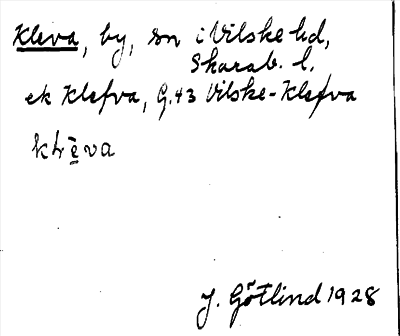 Kleva, by, sn i Vilske hd,
Skarab. l.
ek Klefva, G.43 Vilske-Klefva
J. Götlind 1928